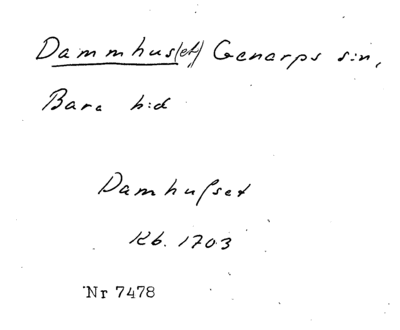 Dammhus(et) Genarps s:n,
Bara h:d
Damhuſset
Kb. 1703
Nr 7478